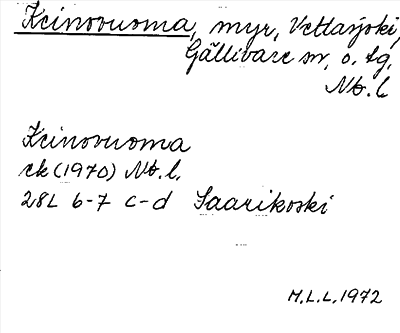 Keinovuoma, myr, Vettasjoki,
Gällivare sn, o. tg,
Nb. l.
Keinovuoma
ek (1970) Nb. l.
28L 6-7 c-d Saarikoski
M.L.L. 1972